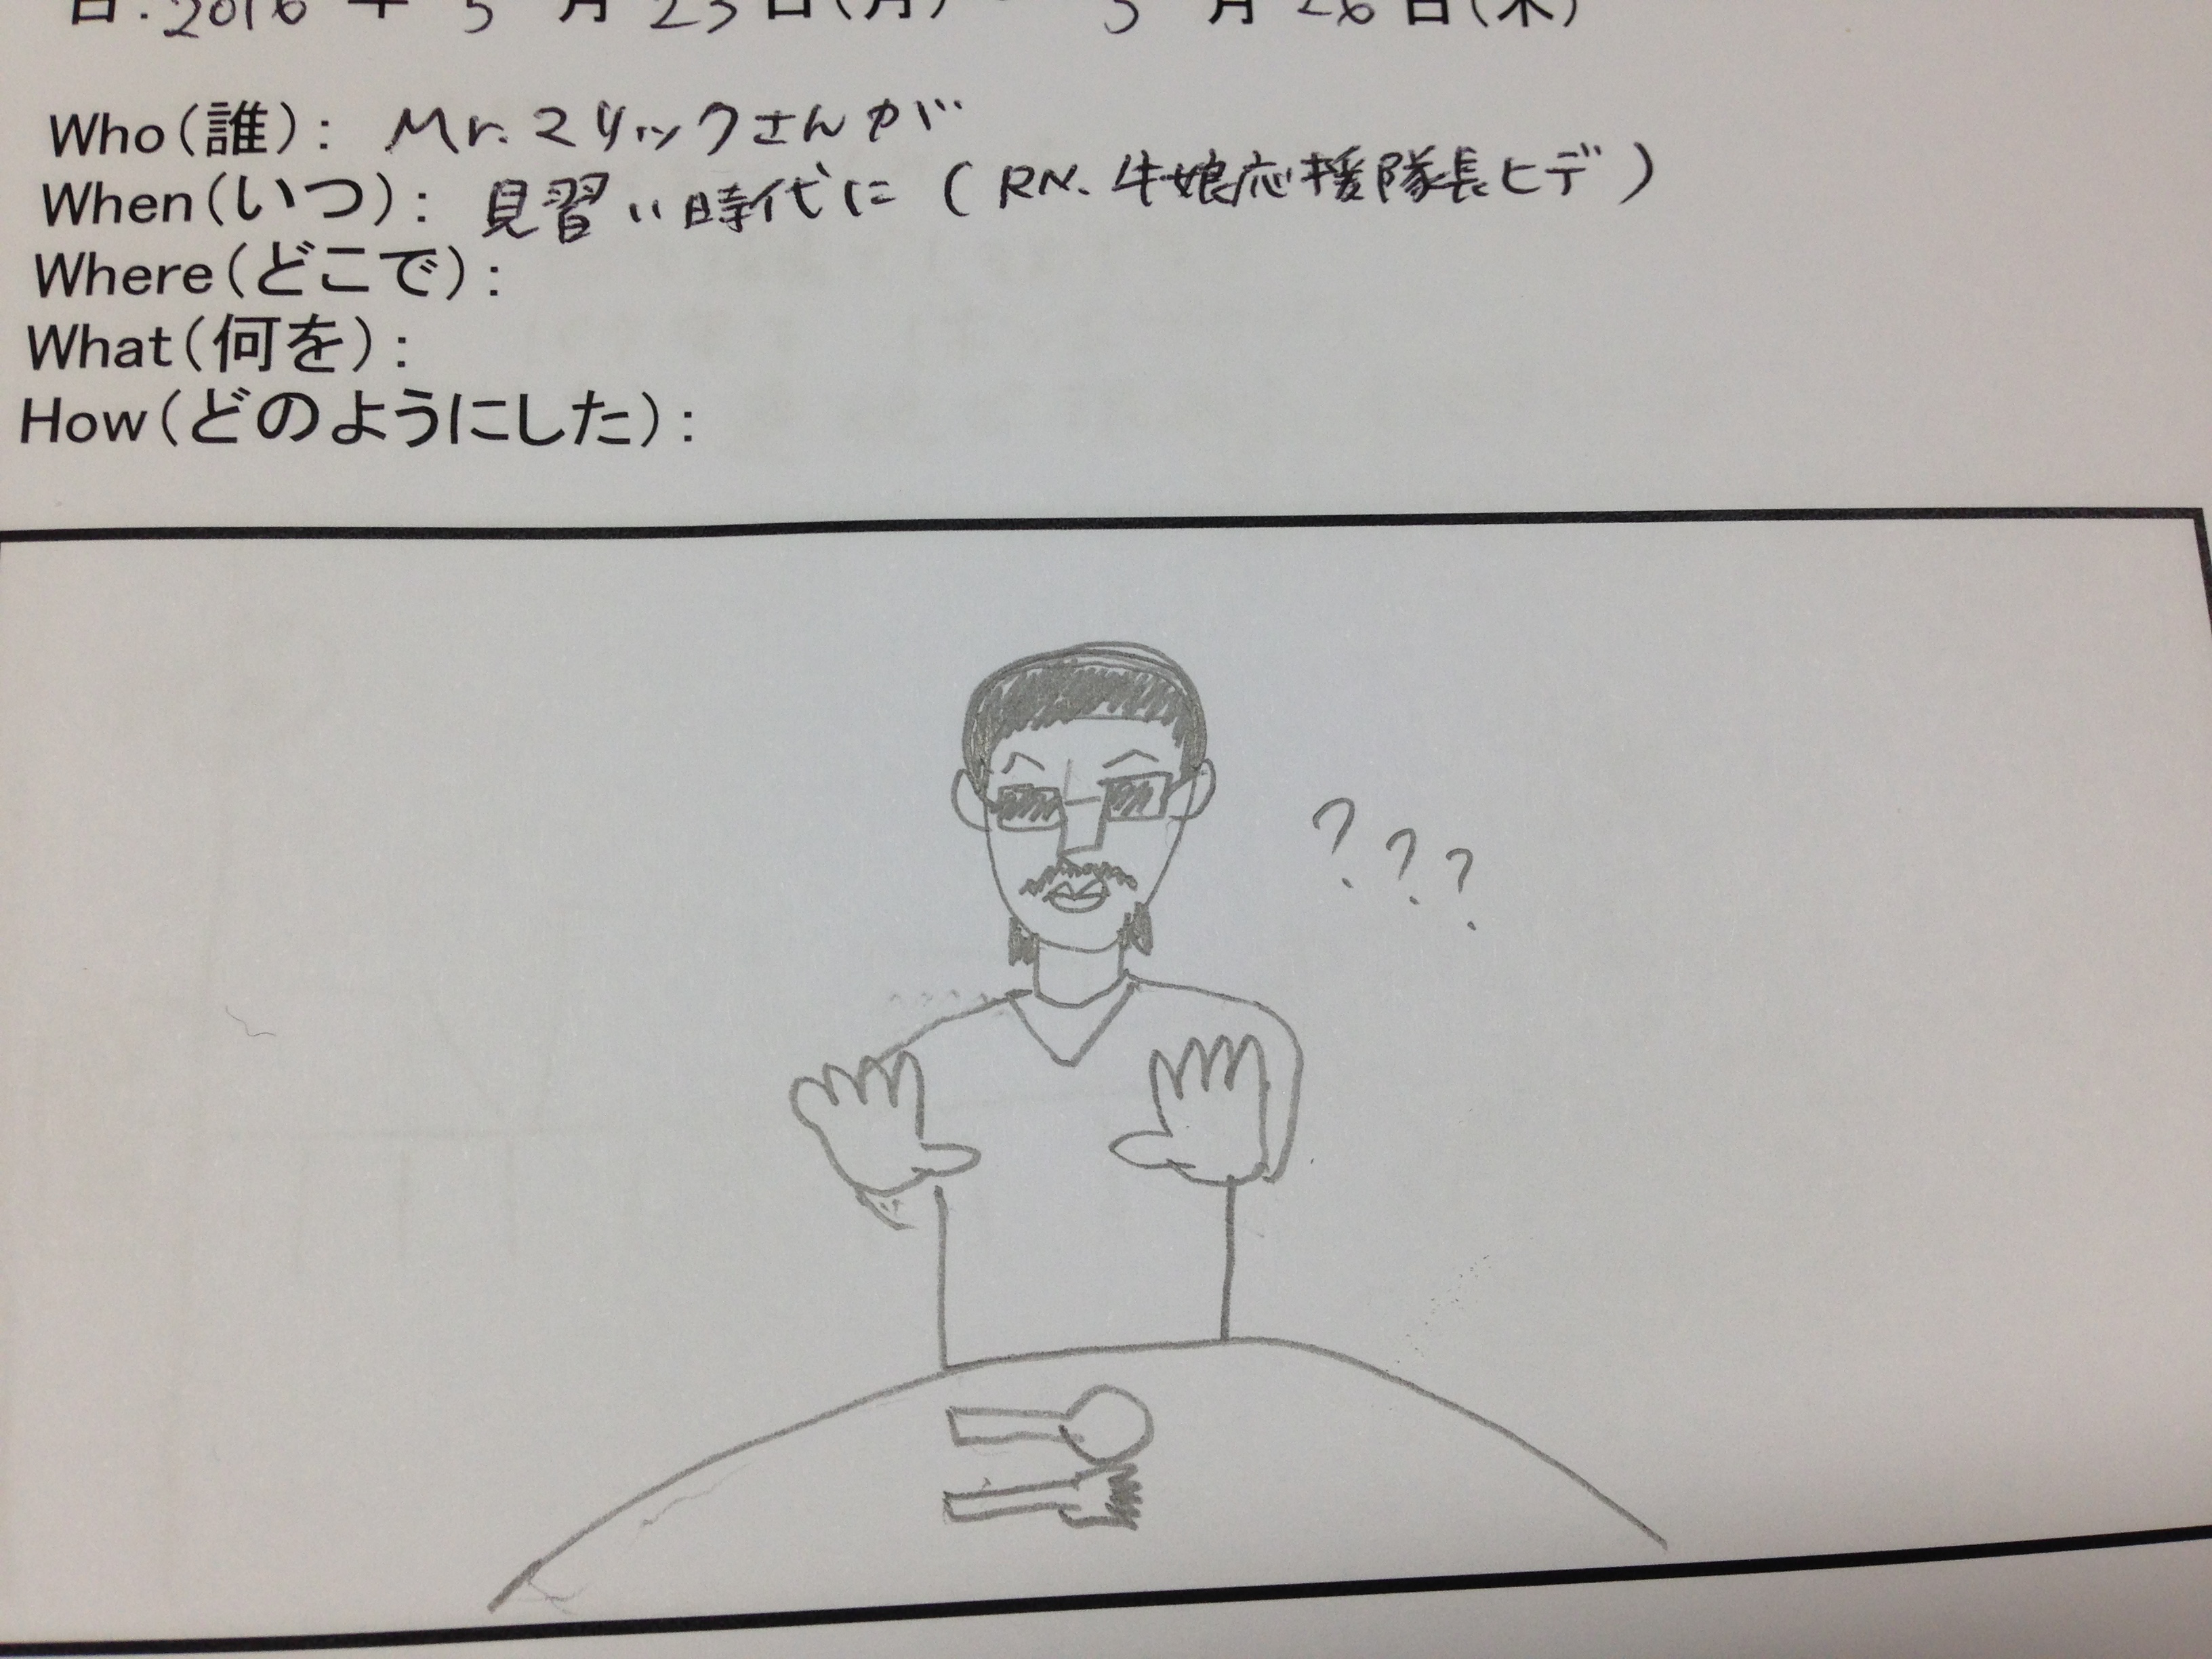 日:2016 年 5 月 23 日(月) ~ 5 月 26 日(木)
Who(誰): Mr.マリックさんが
When(いつ): 見習い時代に (RN.牛娘応援隊長ヒデ)
Where(どこで):
What(何を):
How(どのようにした):
???